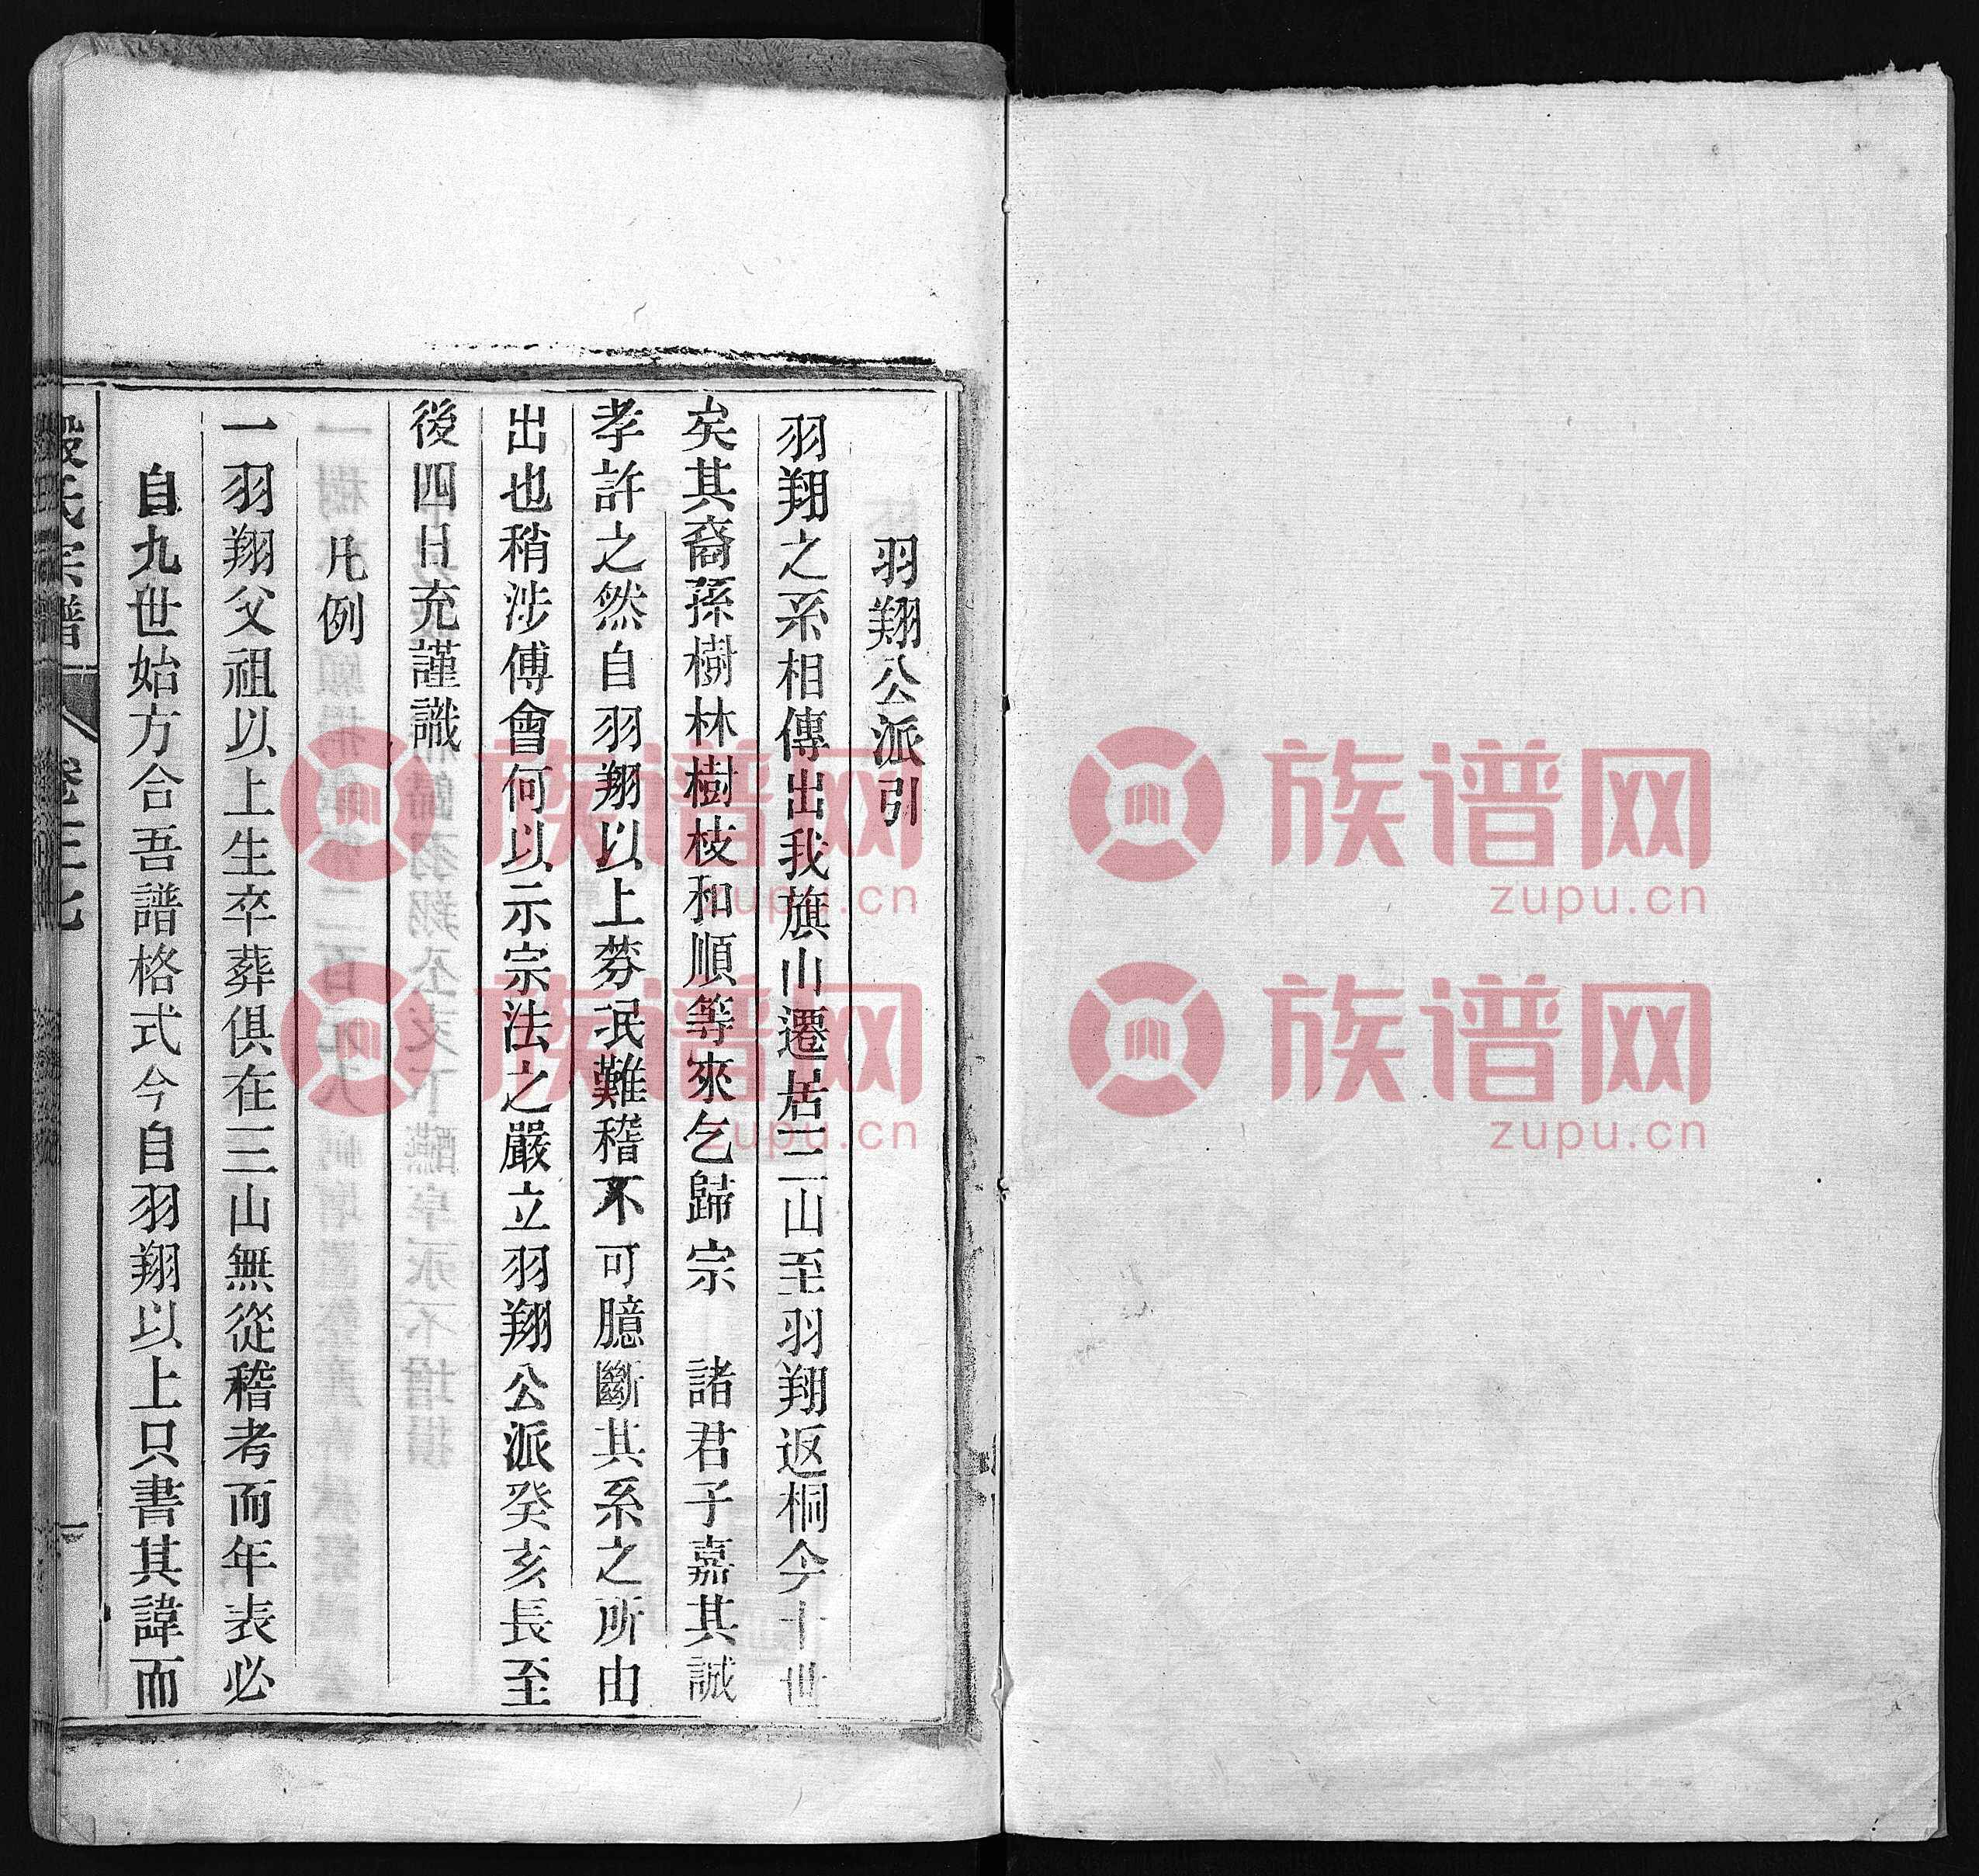 羽翔公派引
羽翔之系相傳出我旗山遷居三山至羽翔返桐今十世
矣其裔孫樹林樹枝和順等來乞歸宗　諸君子嘉其誠
孝許之然自羽翔以上棼泯難稽不可臆斷其系之所由
出也稍涉傅會何以示宗法之嚴立羽翔公派癸亥長至
後四日充謹識
凡例
一羽翔父祖以上生卒葬俱在三山無從稽考而年表必
自九世始方合吾譜格式今自羽翔以上只書其諱而
氏宗譜
卷三七
一
族谱网
zupu.cn
族谱网
zupu.cn
族谱网
zupu.cn
族谱网
zupu.cn